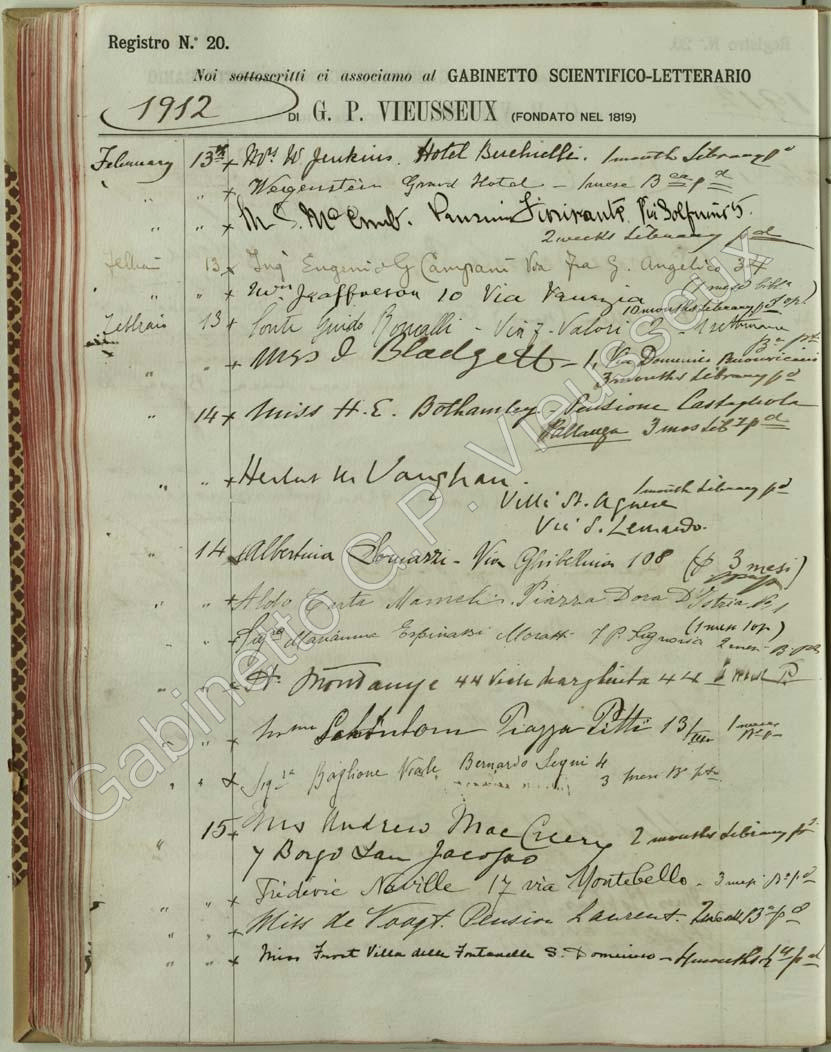 Registro N.º 20.
Noi sottoscritti ci associamo al GABINETTO SCIENTIFICO-LETTERARIO
1912
DI G. P. VIEUSSEUX (FONDATO NEL 1819)
February 13th x Mrs W. Jenkins. Hotel Buchielli. 1 month Library pd
" " x Weigenstein Grand Hotel - 1 mese Bca pd
" " x M S. McComb. Pensione Fioravanti. Via Solferino 5.
2 weeks Library pd
Febbraio 13 x Ingre Eugenio G Campani Via Fra G. Angelico 34
" " x Jeafferson 10 Via Venezia
10 months Library pd
Febbraio 13 x Conte Guido Roncalli - Via F. Valori 2 - settimane
" x Miss I Bladgett - 1, Via Domenico
3 months Library pd
" 14 x Miss H. E. Bothamley - Pensione Castagnola
Pallanza 3 mos Lib pd
" " x Herbert M Vaughan.
1 month Library pd
Villa St. Agnese
Via S. Leonardo.
" 14 x Albertina Somazzi - Via Ghibellina 108 (3 mesi)
" " x Aldo Carta Mameli. Piazza Dora D'Istria No 1
(1 mese 1 op)
" " x Sigra Marianna Espinassi Moratti 7 P. Signoria 2 mesi B. pd
" " x H. Montanye 44 Viale Margherita 44
" " x Mme Schönborn Piazza Pitti 13/III
" " x Sigra Baglione Viale Bernardo Segni 4
3 mesi Ba pta
" 15 x Mrs Andrew MacCreery 2 months Library pd
7 Borgo San Jacopo
" " x Fréderic Naville 17 via Montebello - 3 mesi Ba pd
" " x Miss de Voogt. Pension Laurent. 2 weeks Ba pd
" " x Miss Frost Villa delle Fontanelle S. Domenico - 4 months pd
Gabinetto G.P. Vieusseux